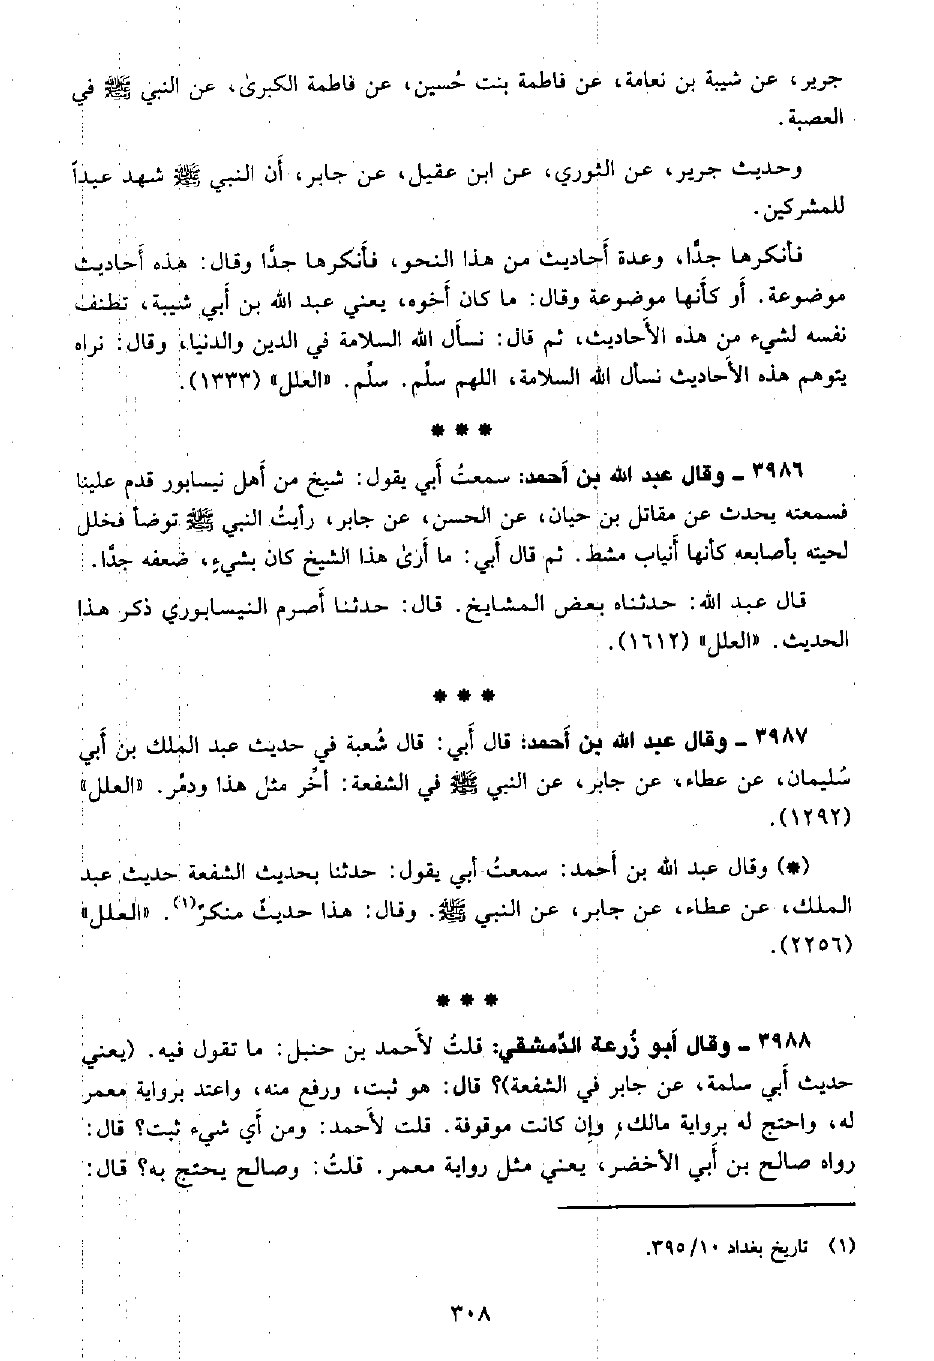 جرير، عن شيبة بن نعامة، عن فاطمة بنت حُسين، عن فاطمة الكبرىٰ، عن النبي ﷺ في
العصبة.
وحديث جرير، عن الثوري، عن ابن عقيل، عن جابر، أن النبي ﷺ شهد عيداً
للمشركين.
فأنكرها جدًّا، وعدة أحاديث من هذا النحو، فأنكرها جدًّا وقال: هذه أحاديث
موضوعة. أو كأنها موضوعة وقال: ما كان أخوه، يعني عبد الله بن أبي شيبة، تطنف
نفسه لشيء من هذه الأحاديث، ثم قال: نسأل الله السلامة في الدين والدنيا، وقال: نراه
يتوهم هذه الأحاديث نسأل الله السلامة، اللهم سلَّم. سلَّم. «العلل» (١٣٣٣).
* * *
٣٩٨٦ ـ وقال عبد الله بن أحمد: سمعتُ أبي يقول: شيخ من أهل نيسابور قدم علينا
فسمعته يحدث عن مقاتل بن حيان، عن الحسن، عن جابر، رأيتُ النبي ﷺ توضأ فخلل
لحيته بأصابعه كأنها أنياب مشط. ثم قال أبي: ما أرىٰ هذا الشيخ كان بشيءٍ، ضعفه جدًّا.
قال عبد الله: حدثناه بعض المشايخ. قال: حدثنا أصرم النيسابوري ذكر هذا
الحديث. «العلل» (١٦١٢).
* * *
٣٩٨٧ ـ وقال عبد الله بن أحمد: قال أبي: قال شُعبة في حديث عبد الملك بن أبي
سُليمان، عن عطاء، عن جابر، عن النبي ﷺ في الشفعة: أخُر مثل هذا ودمُر. «العلل»
(١٢٩٢).
(*) وقال عبد الله بن أحمد: سمعتُ أبي يقول: حدثنا بحديث الشفعة حديث عبد
الملك، عن عطاء، عن جابر، عن النبي ﷺ. وقال: هذا حديثٌ منكرٌ(١). «العلل»
(٢٢٥٦).
* * *
٣٩٨٨ ـ وقال أبو زُرعة الدِّمشقي: قلتُ لأحمد بن حنبل: ما تقول فيه. (يعني
حديث أبي سلمة، عن جابر في الشفعة)؟ قال: هو ثبت، ورفع منه، واعتد برواية معمر
له، واحتج له برواية مالك، وإن كانت موقوفة. قلت لأحمد: ومن أي شيء ثبت؟ قال:
رواه صالح بن أبي الأخضر، يعني مثل رواية معمر. قلتُ: وصالح يحتج به؟ قال:
(١) تاريخ بغداد ١٠/٣٩٥.
٣٠٨